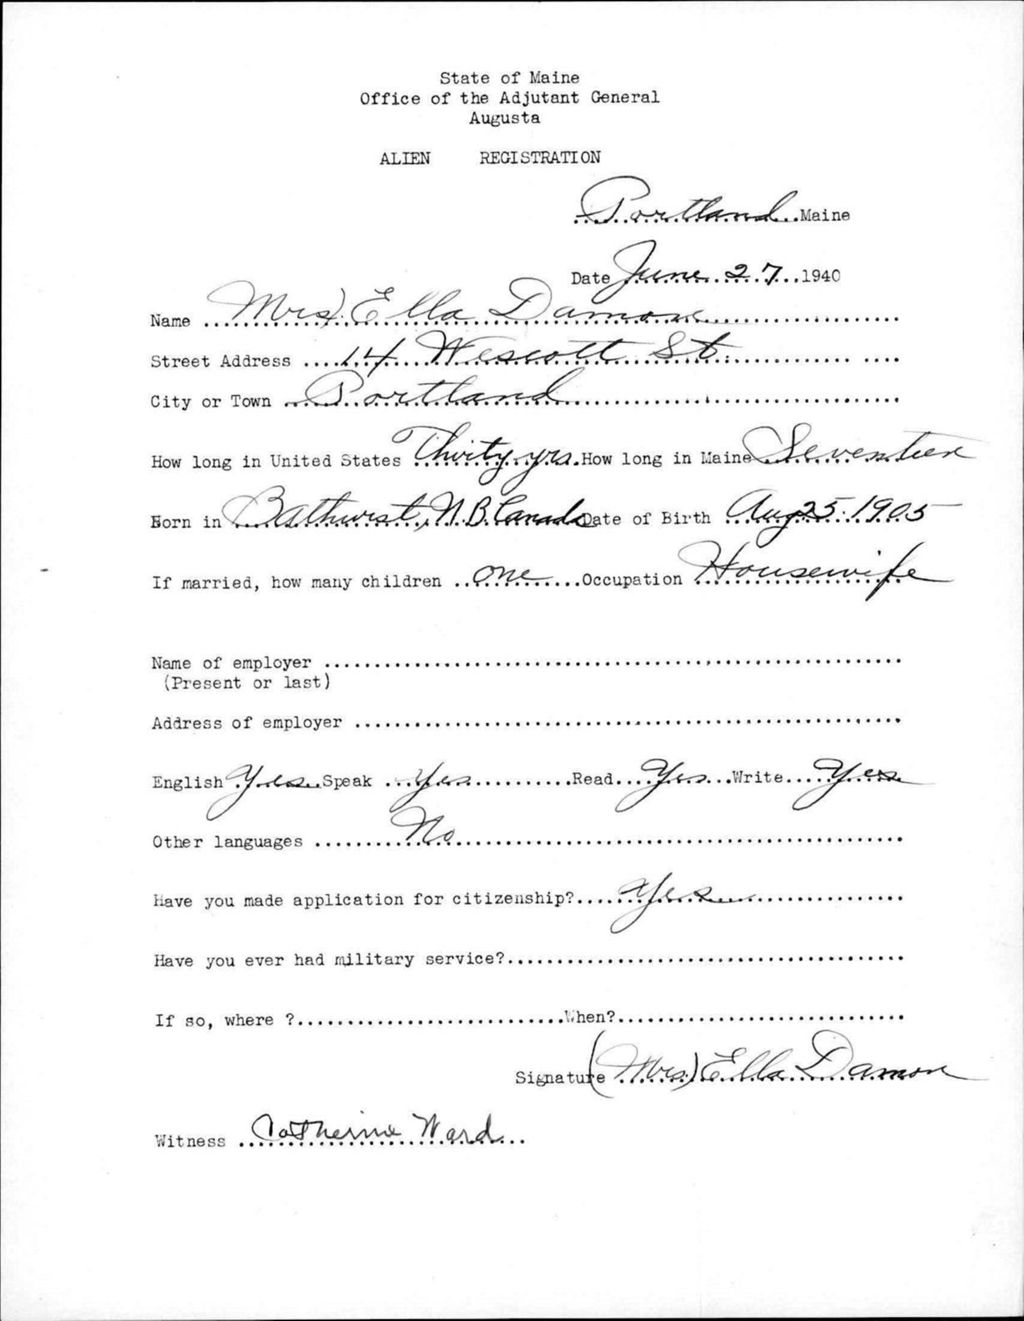 State of Maine
Office of the Adjutant General
Augusta
ALIEN REGISTRATION
Portland Maine
Date June 27 1940
Name Mrs) Ella Damon
Street Address 14 Wescott St.
City or Town Portland
How long in United States Thirty yrs. How long in Maine Seventeen
Born in Bathurst, N.B. Canada Date of Birth Aug 25 - 1905
If married, how many children one Occupation Housewife
Name of employer
(Present or last)
Address of employer
English Yes Speak Yes Read Yes Write Yes
Other languages No
Have you made application for citizenship? Yes
Have you ever had military service?
If so, where ? When?
Signature (Mrs.) Ella Damon
Witness Catherine Ward